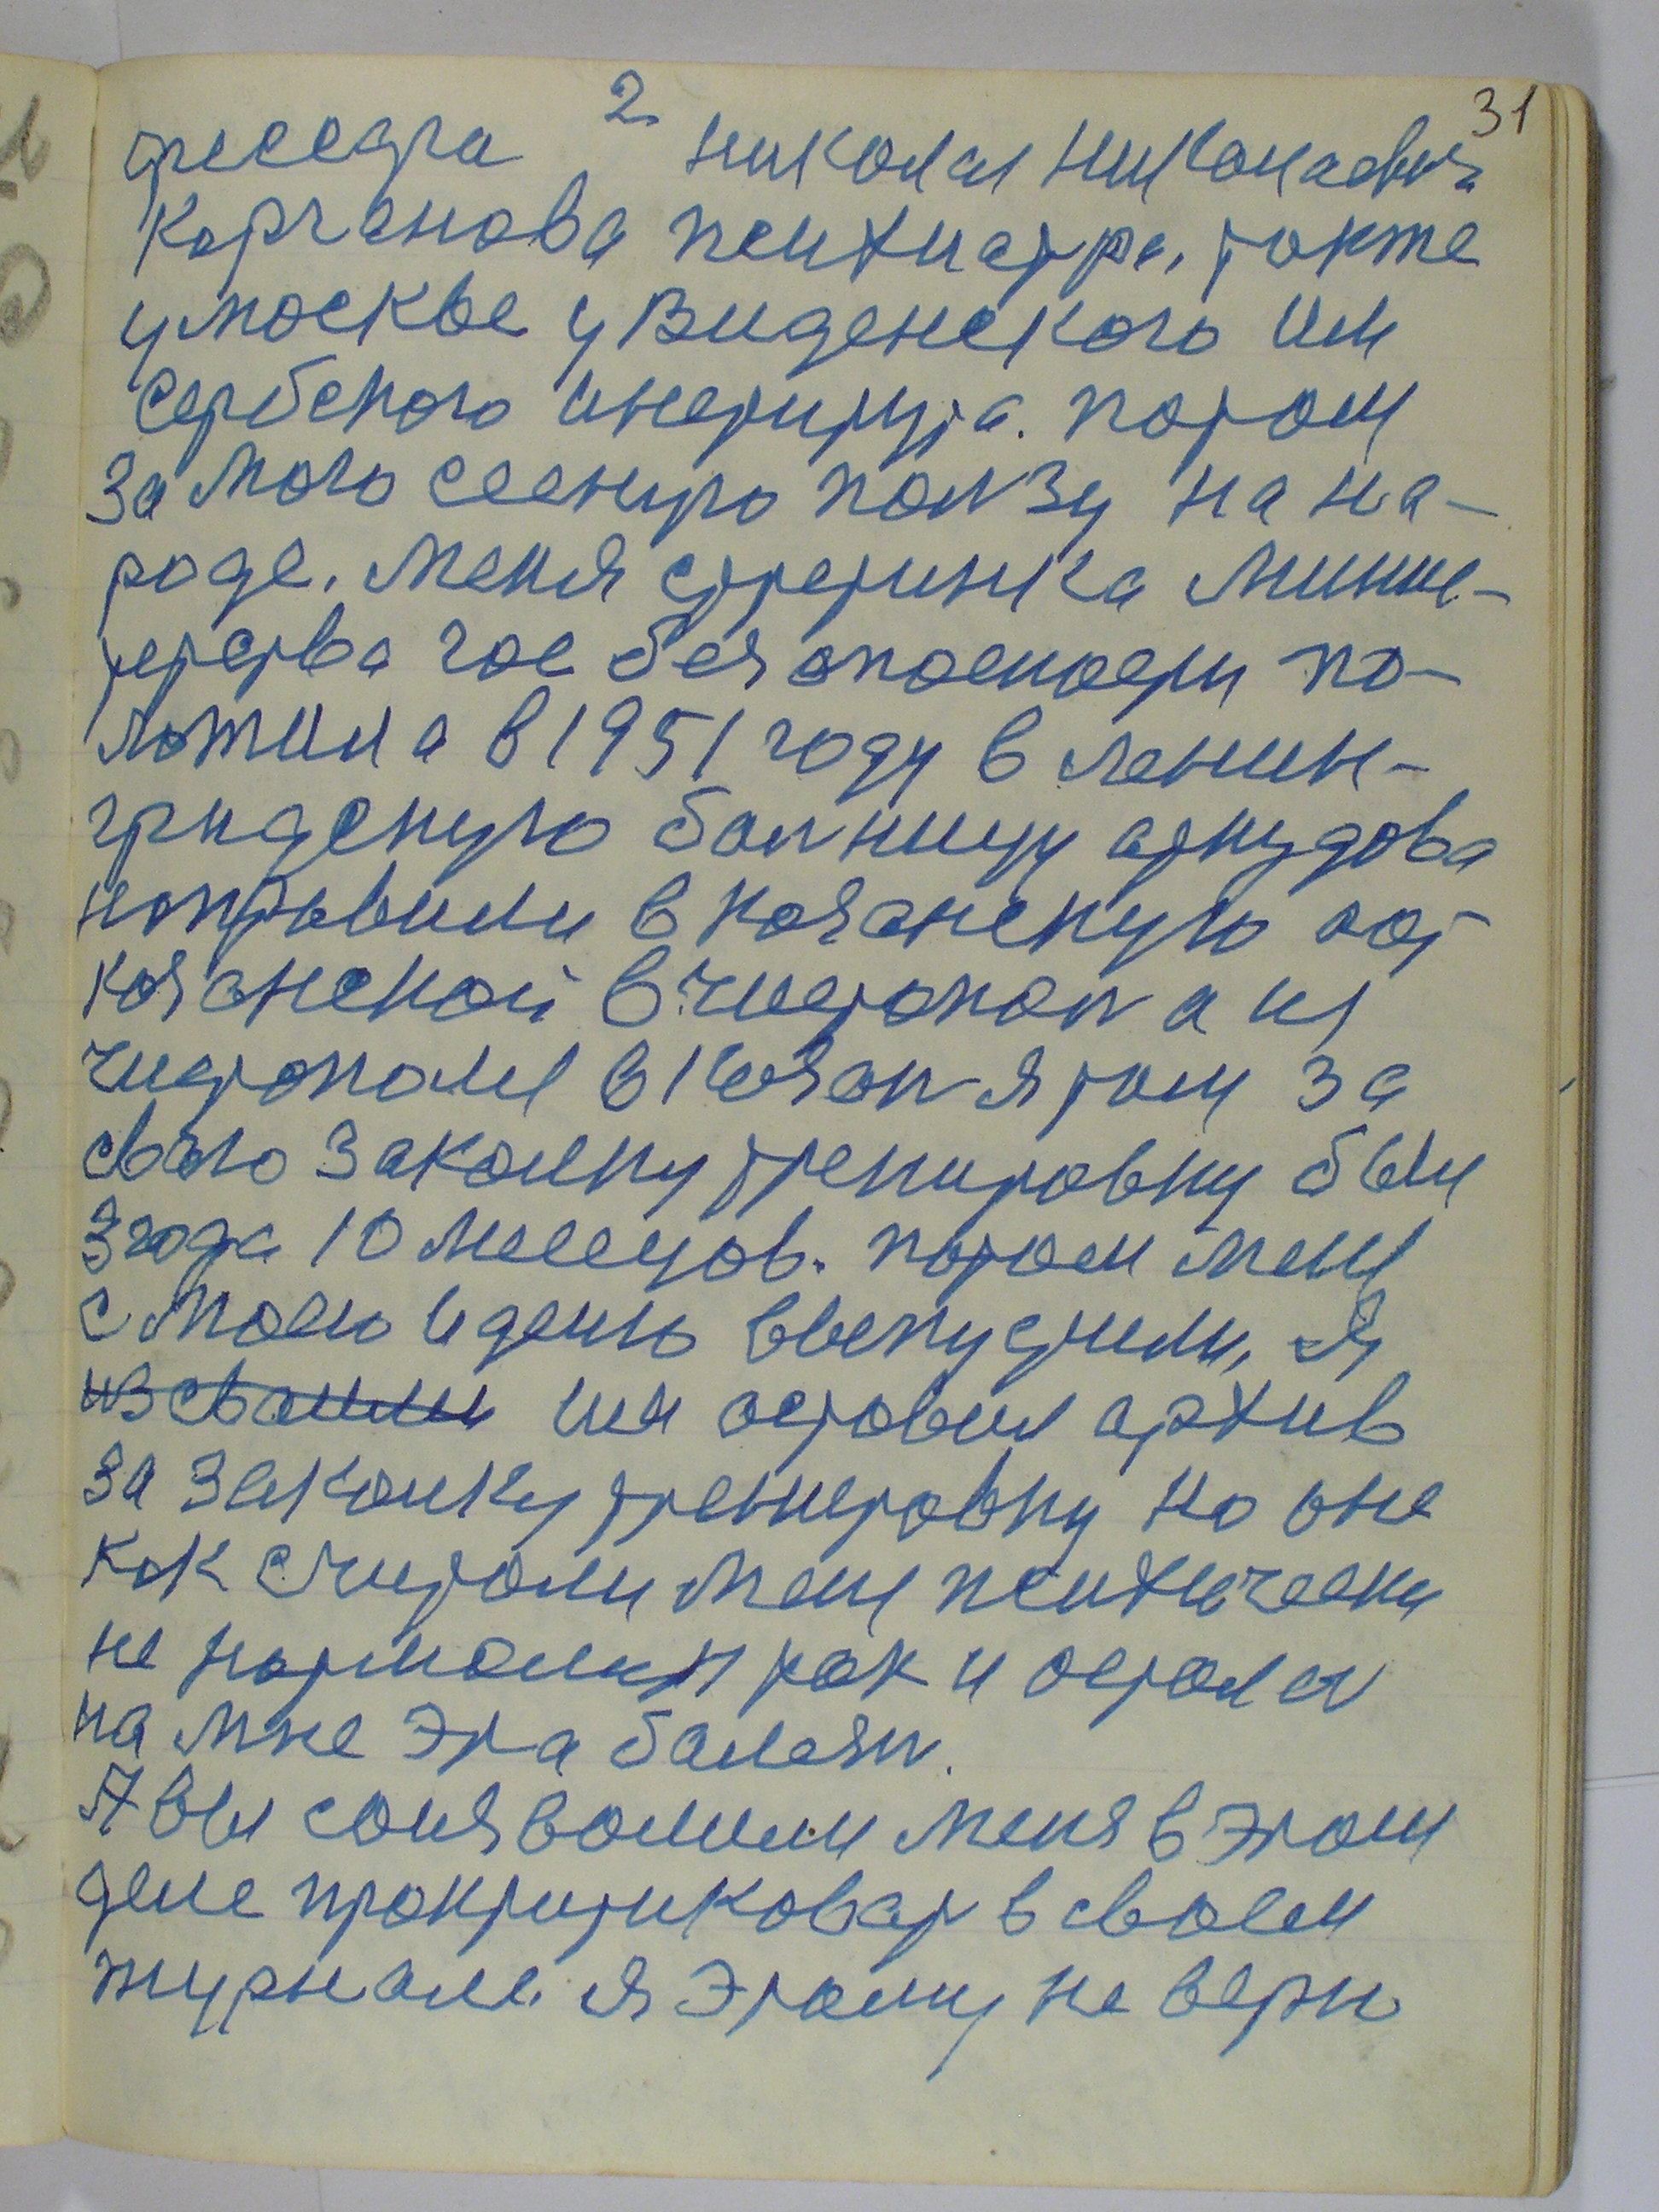 2 31
Николая Николаевича
Корчанова психиатра, также
у москве у Виденского им
Сербского института. потом
За мого сценую ползу на на-
роде. меня стретинка мини-
терства гос безопосности по-
ложила в 1951 году в ленин-
градскую болницу аткудова
направили в казанскую от
казанской в чистопол а из
чистополя в Казан я там за
свого законну тренировку был
3 года 10 месецов. потом меня
с моею идеию ввепустили, я
из своими им аставил архив
за законку тренировку но оне
как считали меня психически
не нормалнН так и астался
на мне эта балезн.
А вы соизволили меня в этом
деле прокритиковат в своем
журнале. я этому не верю